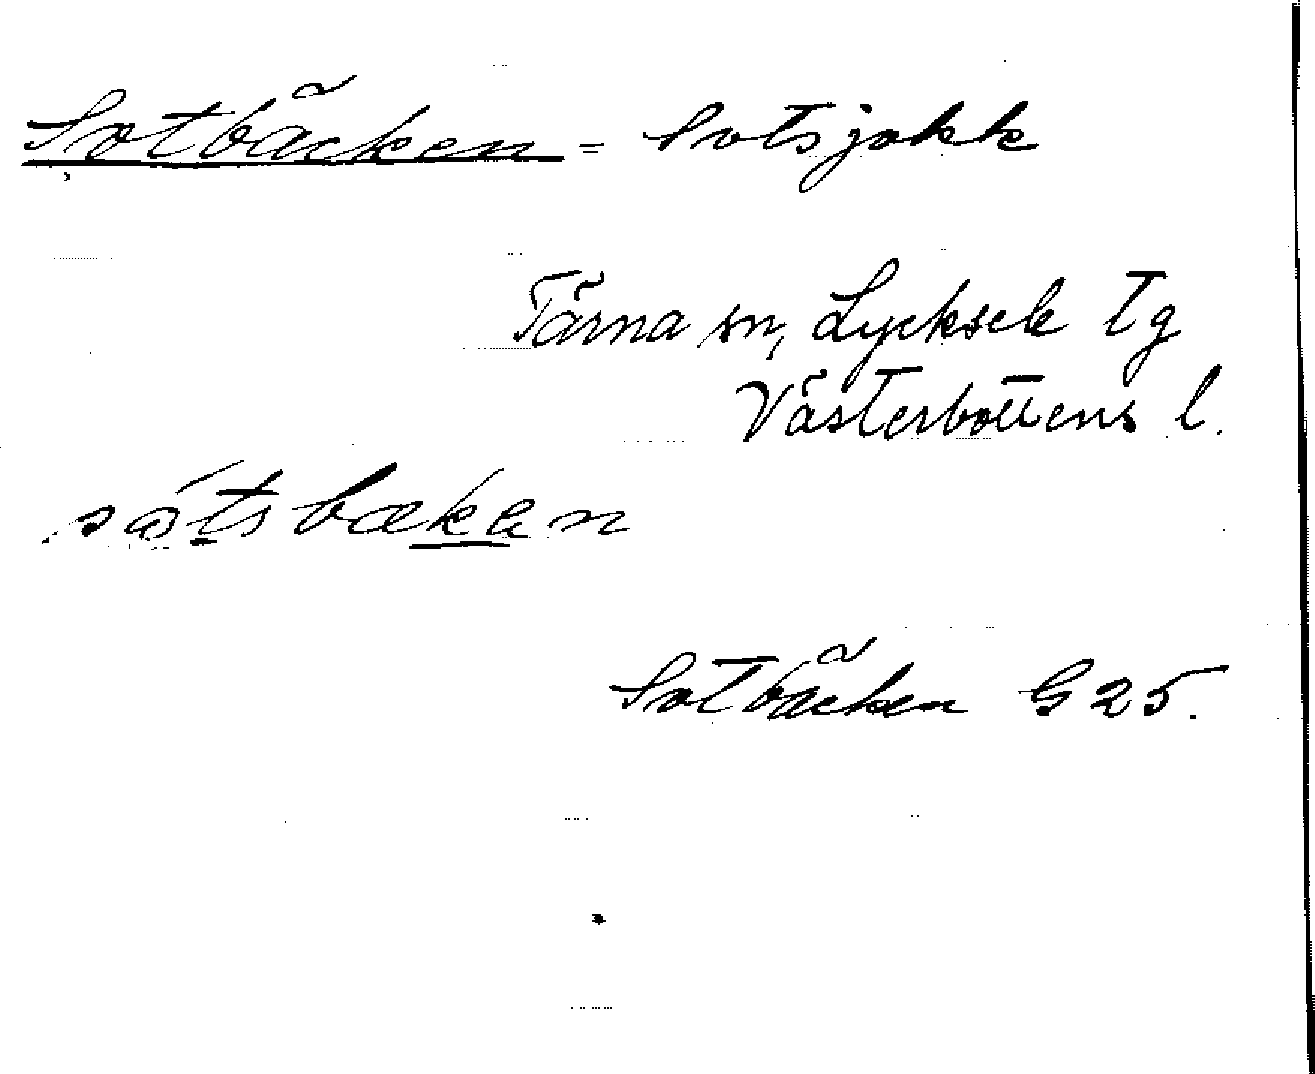 Sotbäcken = Sotsjokk
Tärna sn, Lycksele Tg
Västerbottens l.
såtsbækan
Sotbäcken G 25.